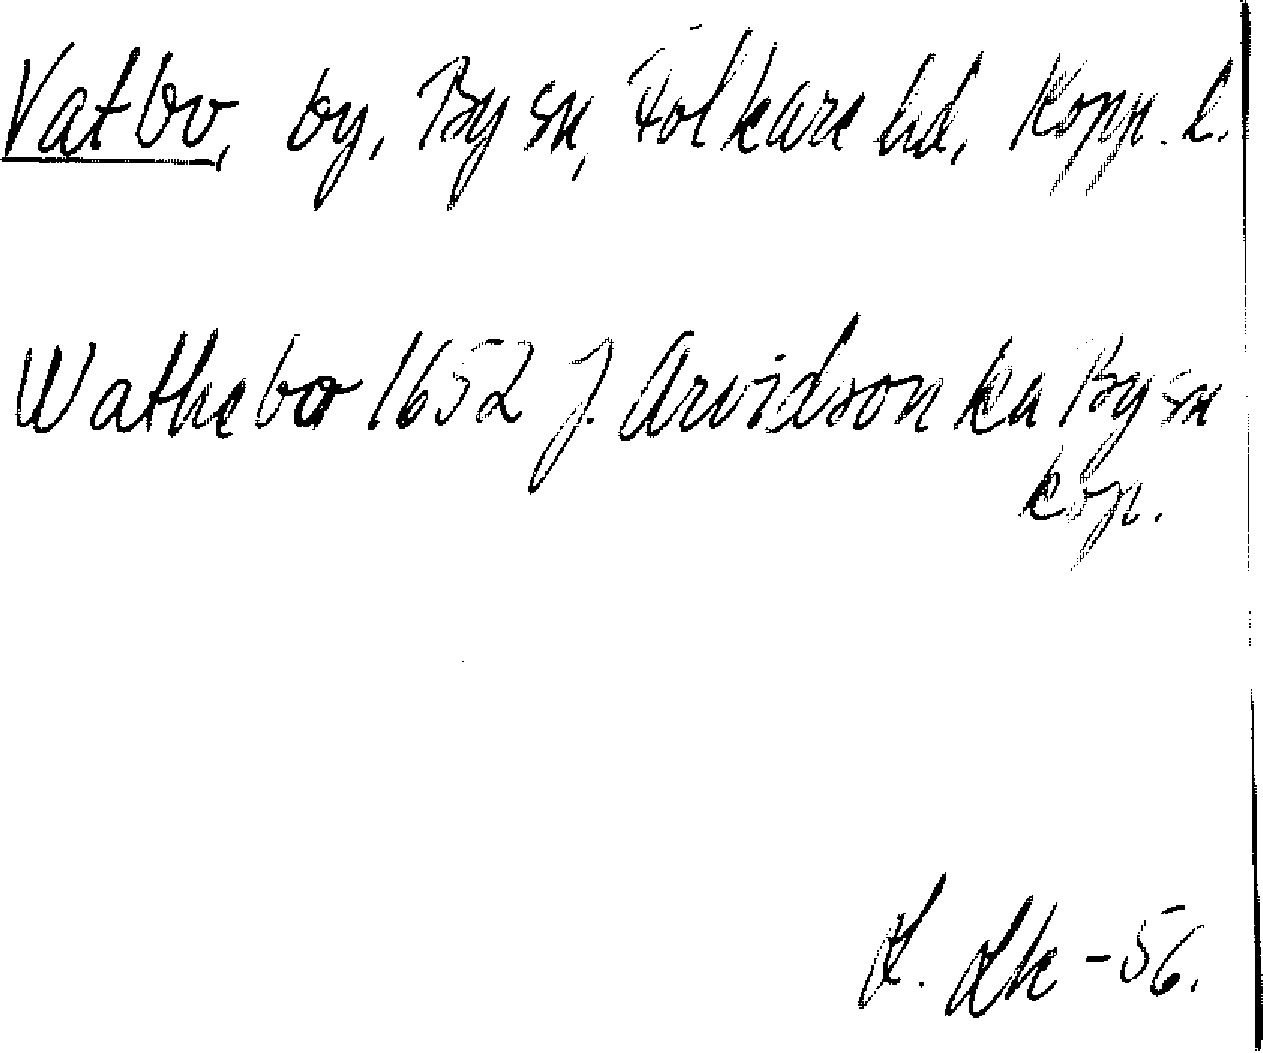 Vatbo, by, By sn, Folkare hd, Kopp. l.
Wathebo 1652 J. Arvidson ka By sn
kop.